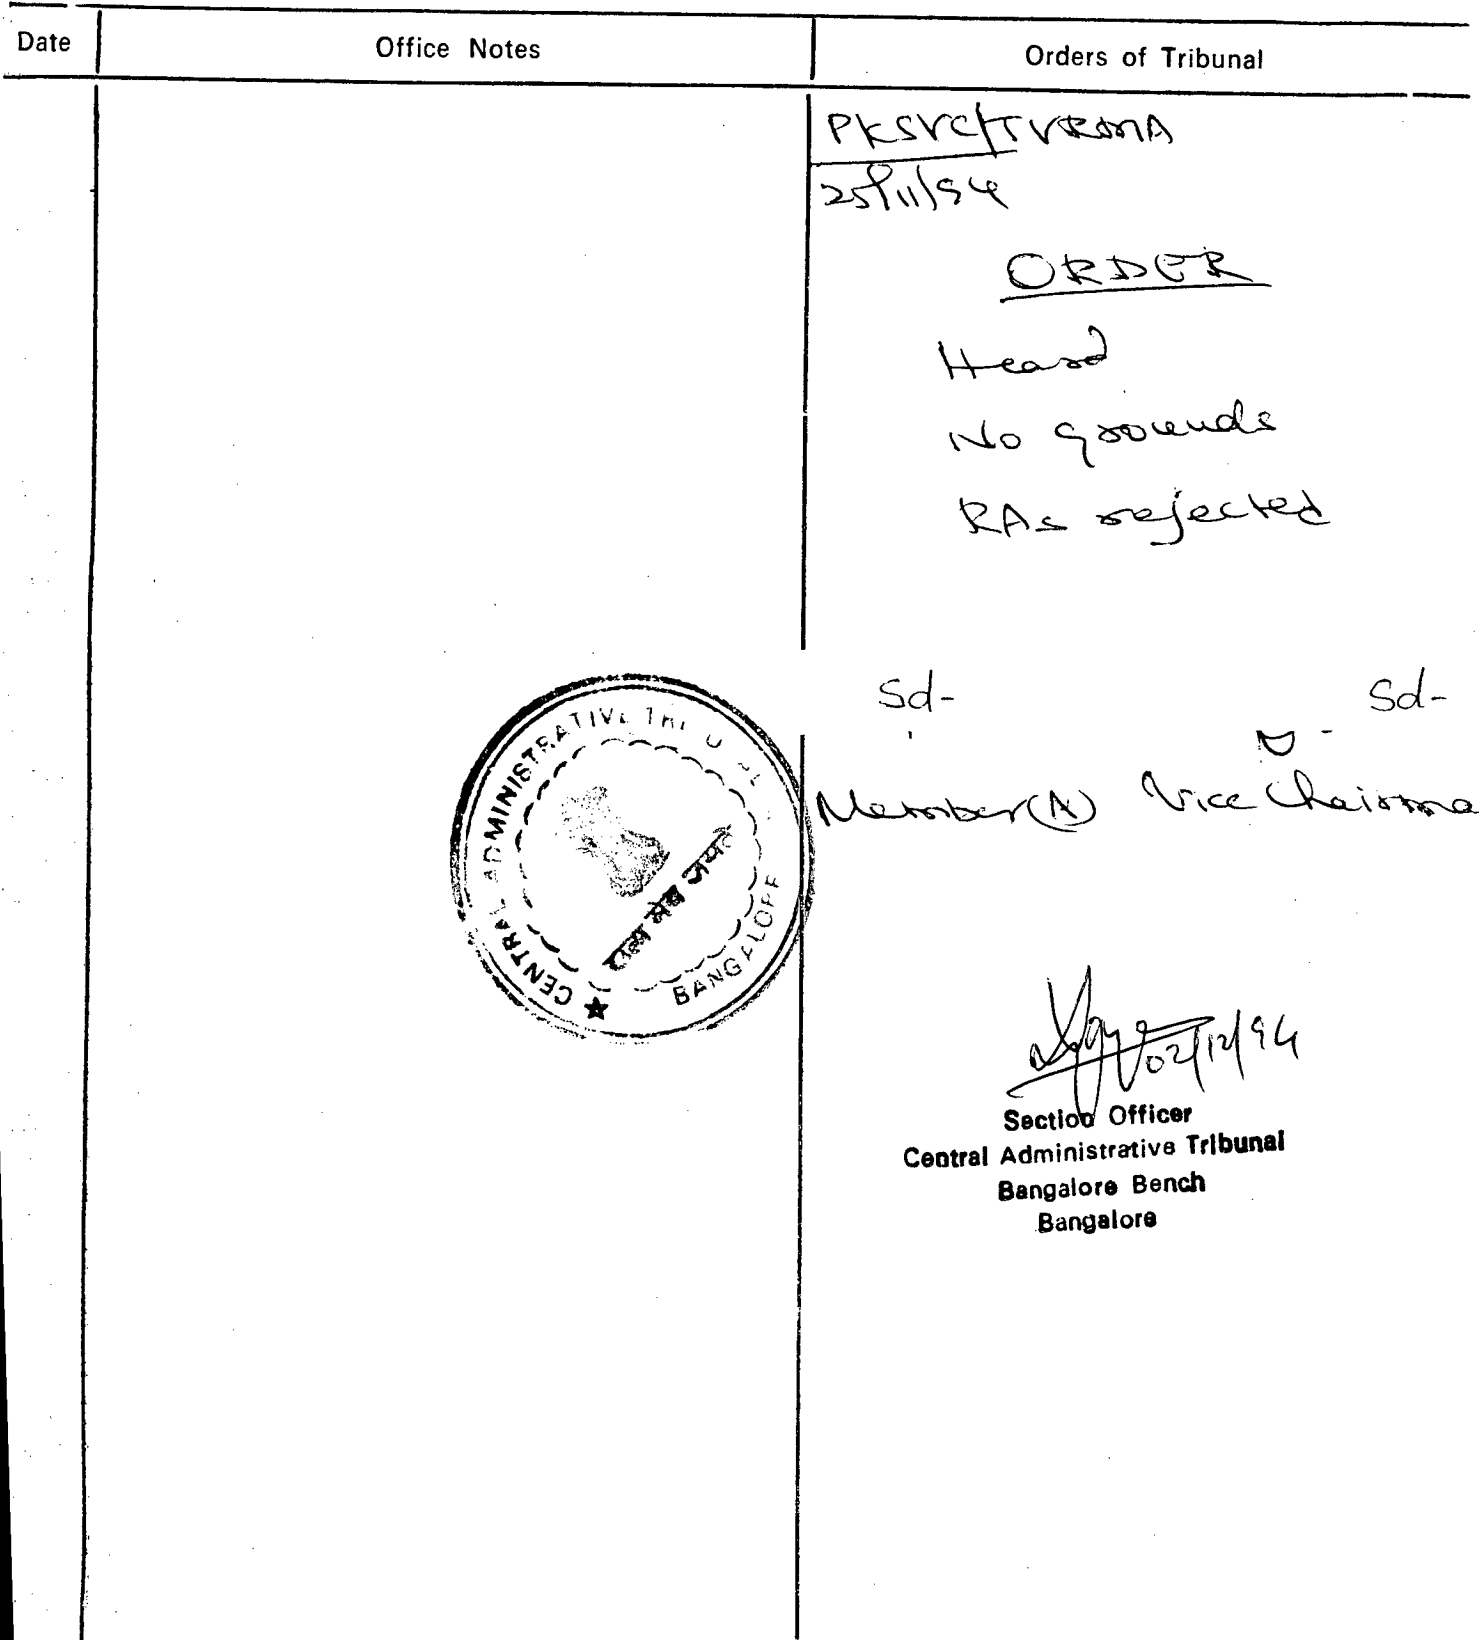 Date
Office Notes
Orders of Tribunal
PKSVC/TVRMA
25/11/94
ORDER
Heard
No grounds
RAs rejected
Sd-
Sd-
Member(A) Vice Chairma
CENTRAL ADMINISTRATIVE
BANGALORE
सत्यमेव जयते
02/12/94
Section Officer
Central Administrative Tribunal
Bangalore Bench
Bangalore